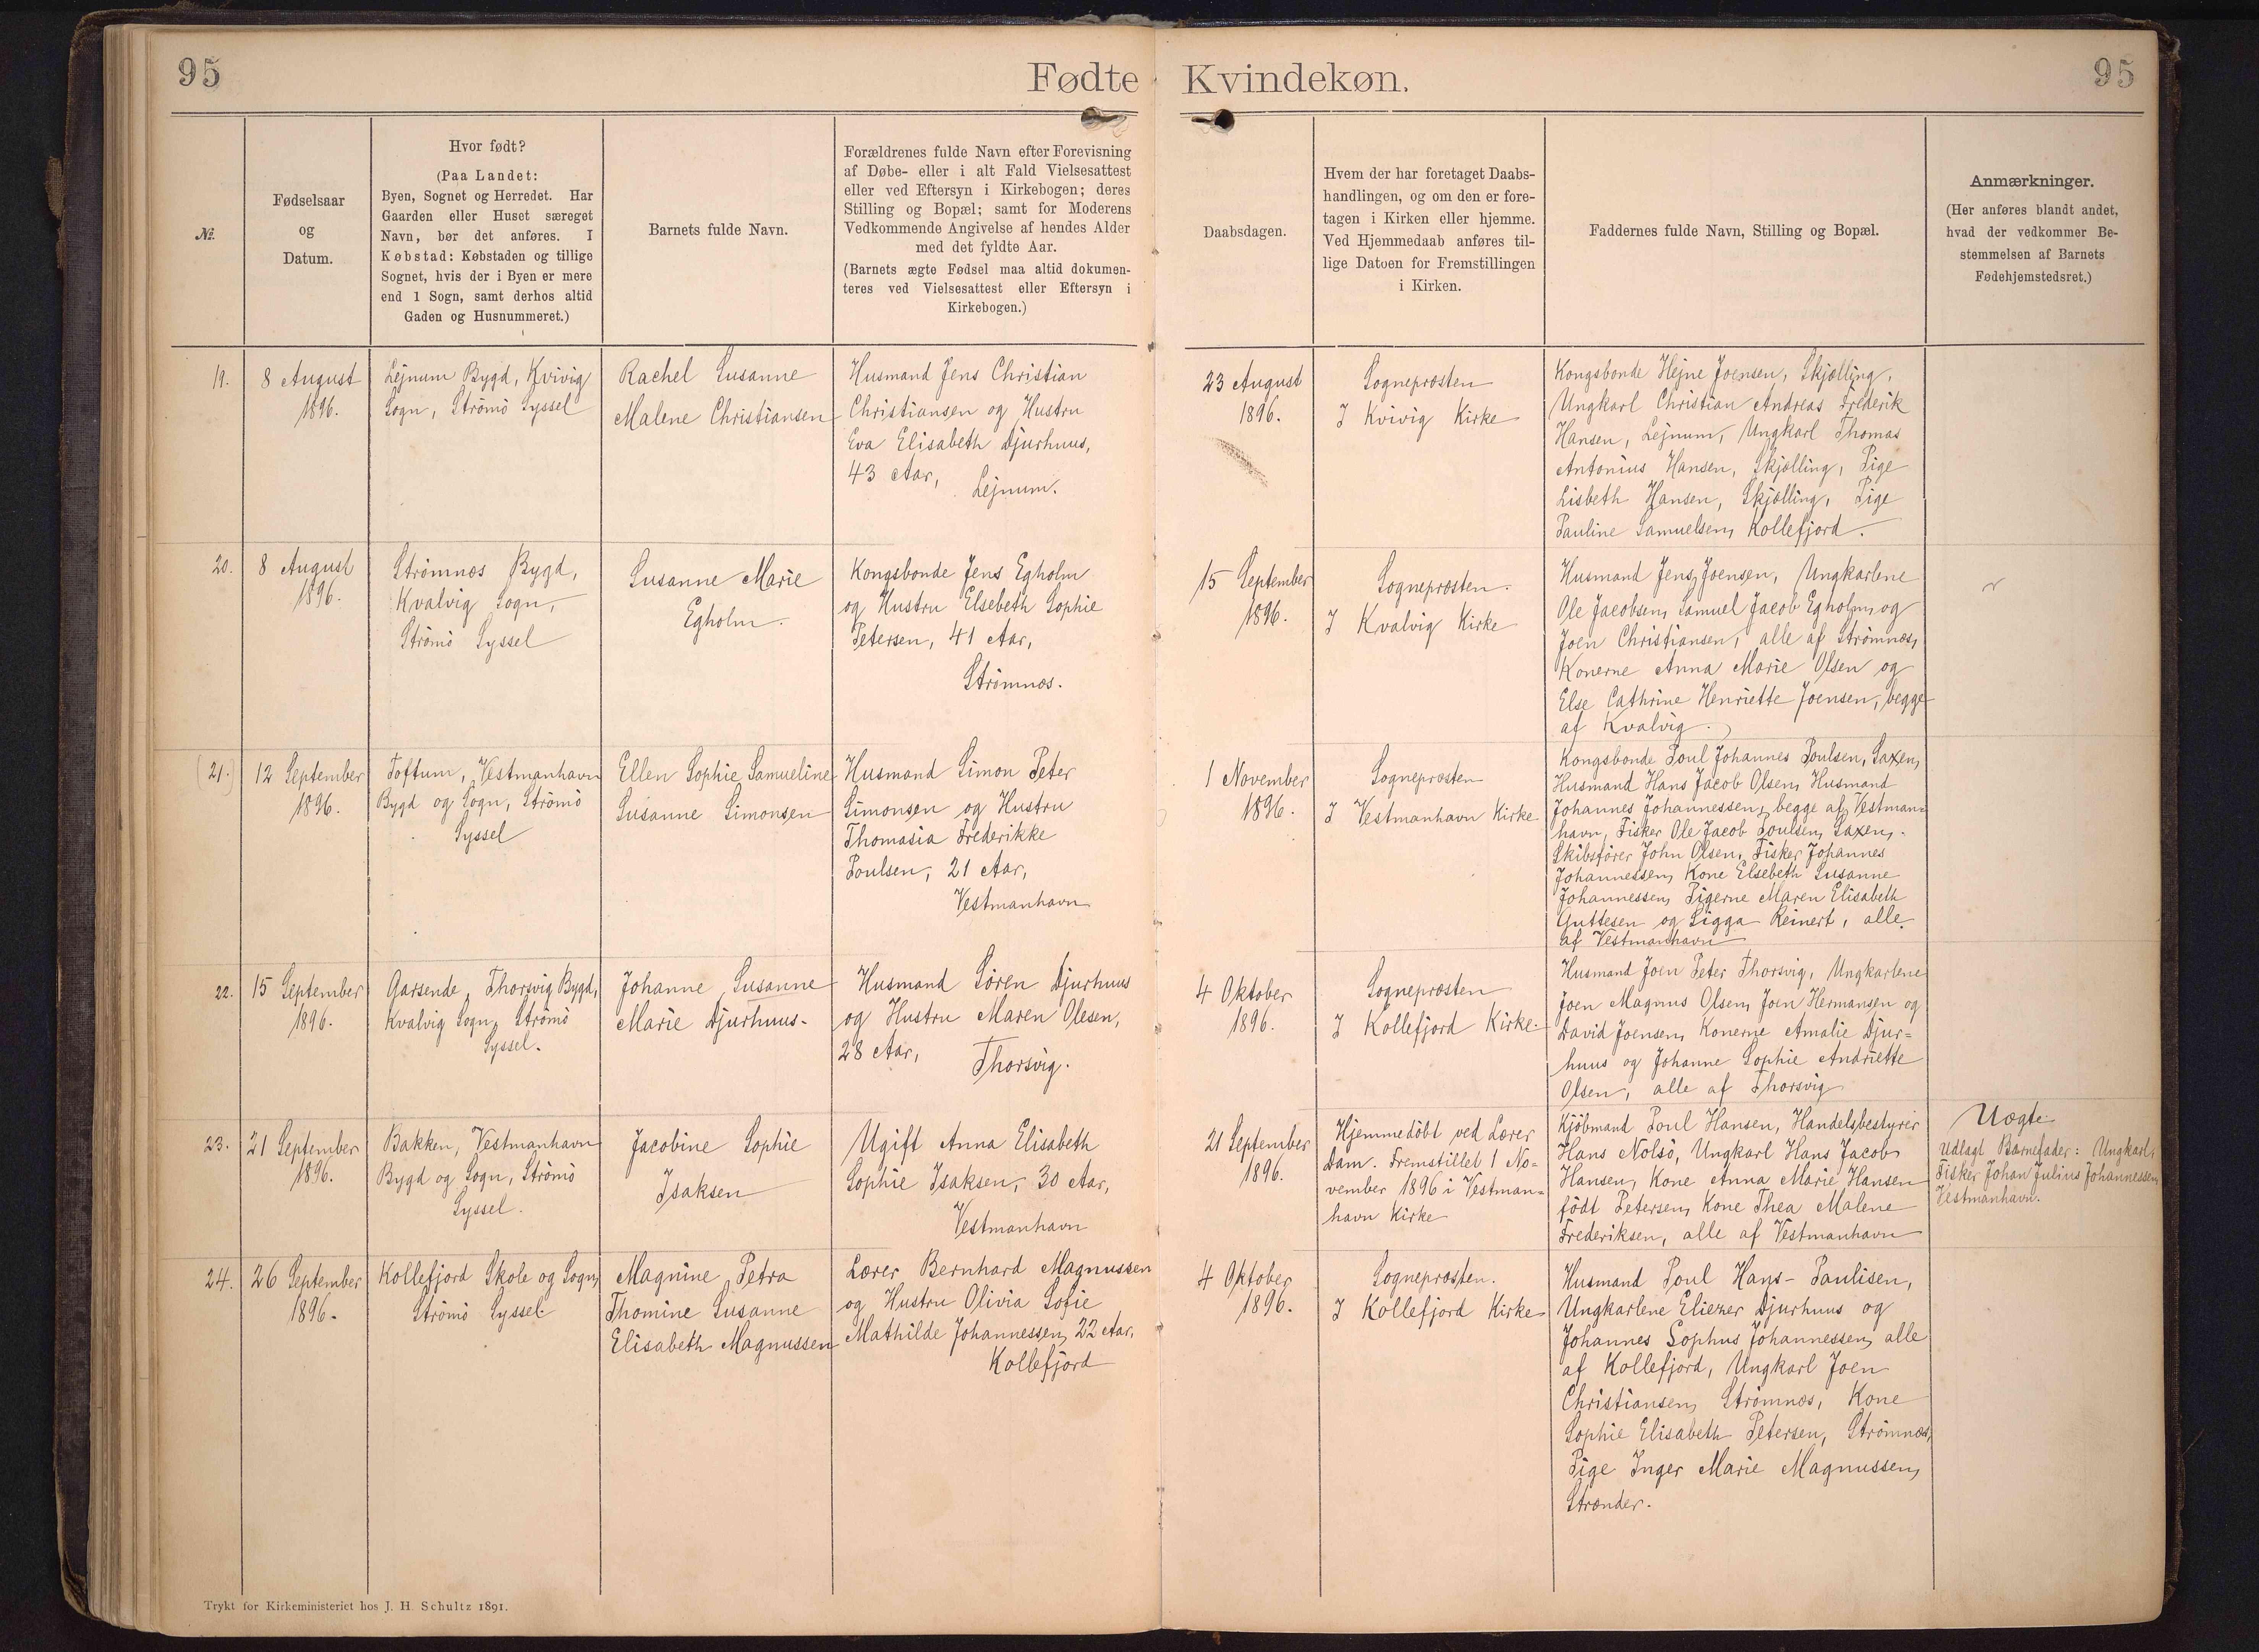 95
Fødte Kvindekøn.
95
№.
Fødselsaar
og
Datum.
Hvor født?
(Paa Landet:
Byen, Sognet og Herredet. Har
Gaarden eller Huset særeget
Navn, bør det anføres. I
Købstad: Købstaden og tillige
Sognet, hvis der i Byen er mere
end 1 Sogn, samt derhos altid
Gaden og Husnummeret.)
Barnets fulde Navn.
Forældrenes fulde Navn efter Forevisning
af Døbe- eller i alt Fald Vielsesattest
eller ved Eftersyn i Kirkebogen; deres
Stilling og Bopæl; samt for Moderens
Vedkommende Angivelse af hendes Alder
med det fyldte Aar.
(Barnets ægte Fødsel maa altid dokumen-
teres ved Vielsesattest eller Eftersyn i
Kirkebogen.)
Daabsdagen.
Hvem der har foretaget Daabs-
handlingen, og om den er fore-
tagen i Kirken eller hjemme.
Ved Hjemmedaab anføres til-
lige Datoen for Fremstillingen
i Kirken.
Faddernes fulde Navn, Stilling og Bopæl.
Anmærkninger.
(Her anføres blandt andet,
hvad der vedkommer Be-
stemmelsen af Barnets
Fødehjemstedsret.)
19.
8 August
1896.
Lejnum Bygd, Kvivig
Sogn, Strömö Syssel
Rachel Susanne
Malene Christiansen
Husmand Jens Christian
Christiansen og Hustru
Eva Elisabeth Djurhuus,
43 Aar,
Lejnum.
23 August
1896.
Sognepræsten
I Kvivig Kirke
Kongsbonde Hejne Joensen, Skjælling,
Ungkarl Christian Andreas Frederik
Hansen, Lejnum, Ungkarl Thomas
Antonius Hansen, Skjælling, Pige
Lisbeth Hansen, Skjælling, Pige
Pauline Samuelsen, Kollefjord.
20.
8 August
1896.
Strömnæs Bygd,
Kvalvig Sogn,
Strömö Syssel
Susanne Marie
Egholm.
Kongsbonde Jens Egholm
og Hustru Elsebeth Sophie
Petersen, 41 Aar,
Strömnæs.
15 September
1896.
Sognepræsten.
I Kvalvig Kirke
Husmand Jens Joensen, Ungkarlene
Ole Jacobsen, Samuel Jacob Egholm, og
Joen Christiansen, alle af Strömnæs,
Konerne Anna Marie Olsen og
Else Cathrine Henriette Joensen, begge
af Kvalvig.
(21.)
12 September
1896.
Toftum, Vestmanhavn
Bygd og Sogn, Strömö
Syssel
Ellen Sophie Samueline
Susanne Simonsen
Husmand Simon Peter
Simonsen og Hustru
Thomasia Frederikke
Poulsen, 21 Aar,
Vestmanhavn
1 November
1896.
Sognepræsten
I Vestmanhavn Kirke
Kongsbonde Poul Johannes Poulsen, Saxen,
Husmand Hans Jacob Olsen, Husmand
Johannes Johannessen, begge af Vestman=
havn, Fisker Ole Jacob Poulsen, Saxen,
Skibsförer John Olsen, Fisker Johannes
Johannessen, Kone Elsebeth Susanne
Johannessen, Pigerne Maren Elisabeth
Guttesen og Sigga Reinert, alle
af Vestmanhavn
22.
15 September
1896.
Garsende, Thorsvig Bygd,
Kvalvig Sogn, Strömö
Syssel.
Johanne Susanne
Marie Djurhuus.
Husmand Sören Djurhuus
og Hustru Maren Olesen,
28 Aar,
Thorsvig.
4 Oktober
1896.
Sognepræsten
I Kollefjord Kirke.
Husmand Joen Peter Thorsvig, Ungkarlene
Joen Magnus Olsen, Joen Hermansen og
David Joensen, Konerne Amalie Djur=
huus og Johanne Sophie Andriette
Olsen, alle af Thorsvig
23.
21 September
1896.
Bakken, Vestmanhavn
Bygd og Sogn, Strömö
Syssel.
Jacobine Sophie
Isaksen
Ugift Anna Elisabeth
Sophie Isaksen, 30 Aar,
Vestmanhavn
21 September
1896.
Hjemmedöbt ved Lærer
Dam. Fremstillet 1 No=
vember 1896 i Vestman=
havn Kirke
Kjöbmand Poul Hansen, Handelsbestyrer
Hans Nolsö, Ungkarl Hans Jacob
Hansen, Kone Anna Marie Hansen
födt Petersen, Kone Thea Malene
Frederiksen, alle af Vestmanhavn
Uægte
Udlagt Barnefader: Ungkarl,
Fisker Johan Julius Johannessen,
Vestmanhavn.
24.
26 September
1896.
Kollefjord Skole og Sogn,
Strömö Syssel.
Magnine Petra
Thomine Susanne
Elisabeth Magnussen
Lærer Bernhard Magnussen
og Hustru Olivia Sofie
Mathilde Johannessen, 22 Aar,
Kollefjord
4 Oktober
1896.
Sognepræsten.
I Kollefjord Kirke
Husmand Poul Hans-Paulisen,
Ungkarlene Eliezer Djurhuus og
Johannes Sophus Johannessen, alle
af Kollefjord, Ungkarl Joen
Christiansen, Strömnæs, Kone
Sophie Elisabeth Petersen, Strömnæs,
Pige Inger Marie Magnussen,
Strænder.
Trykt for Kirkeministeriet hos J. H. Schultz 1891.